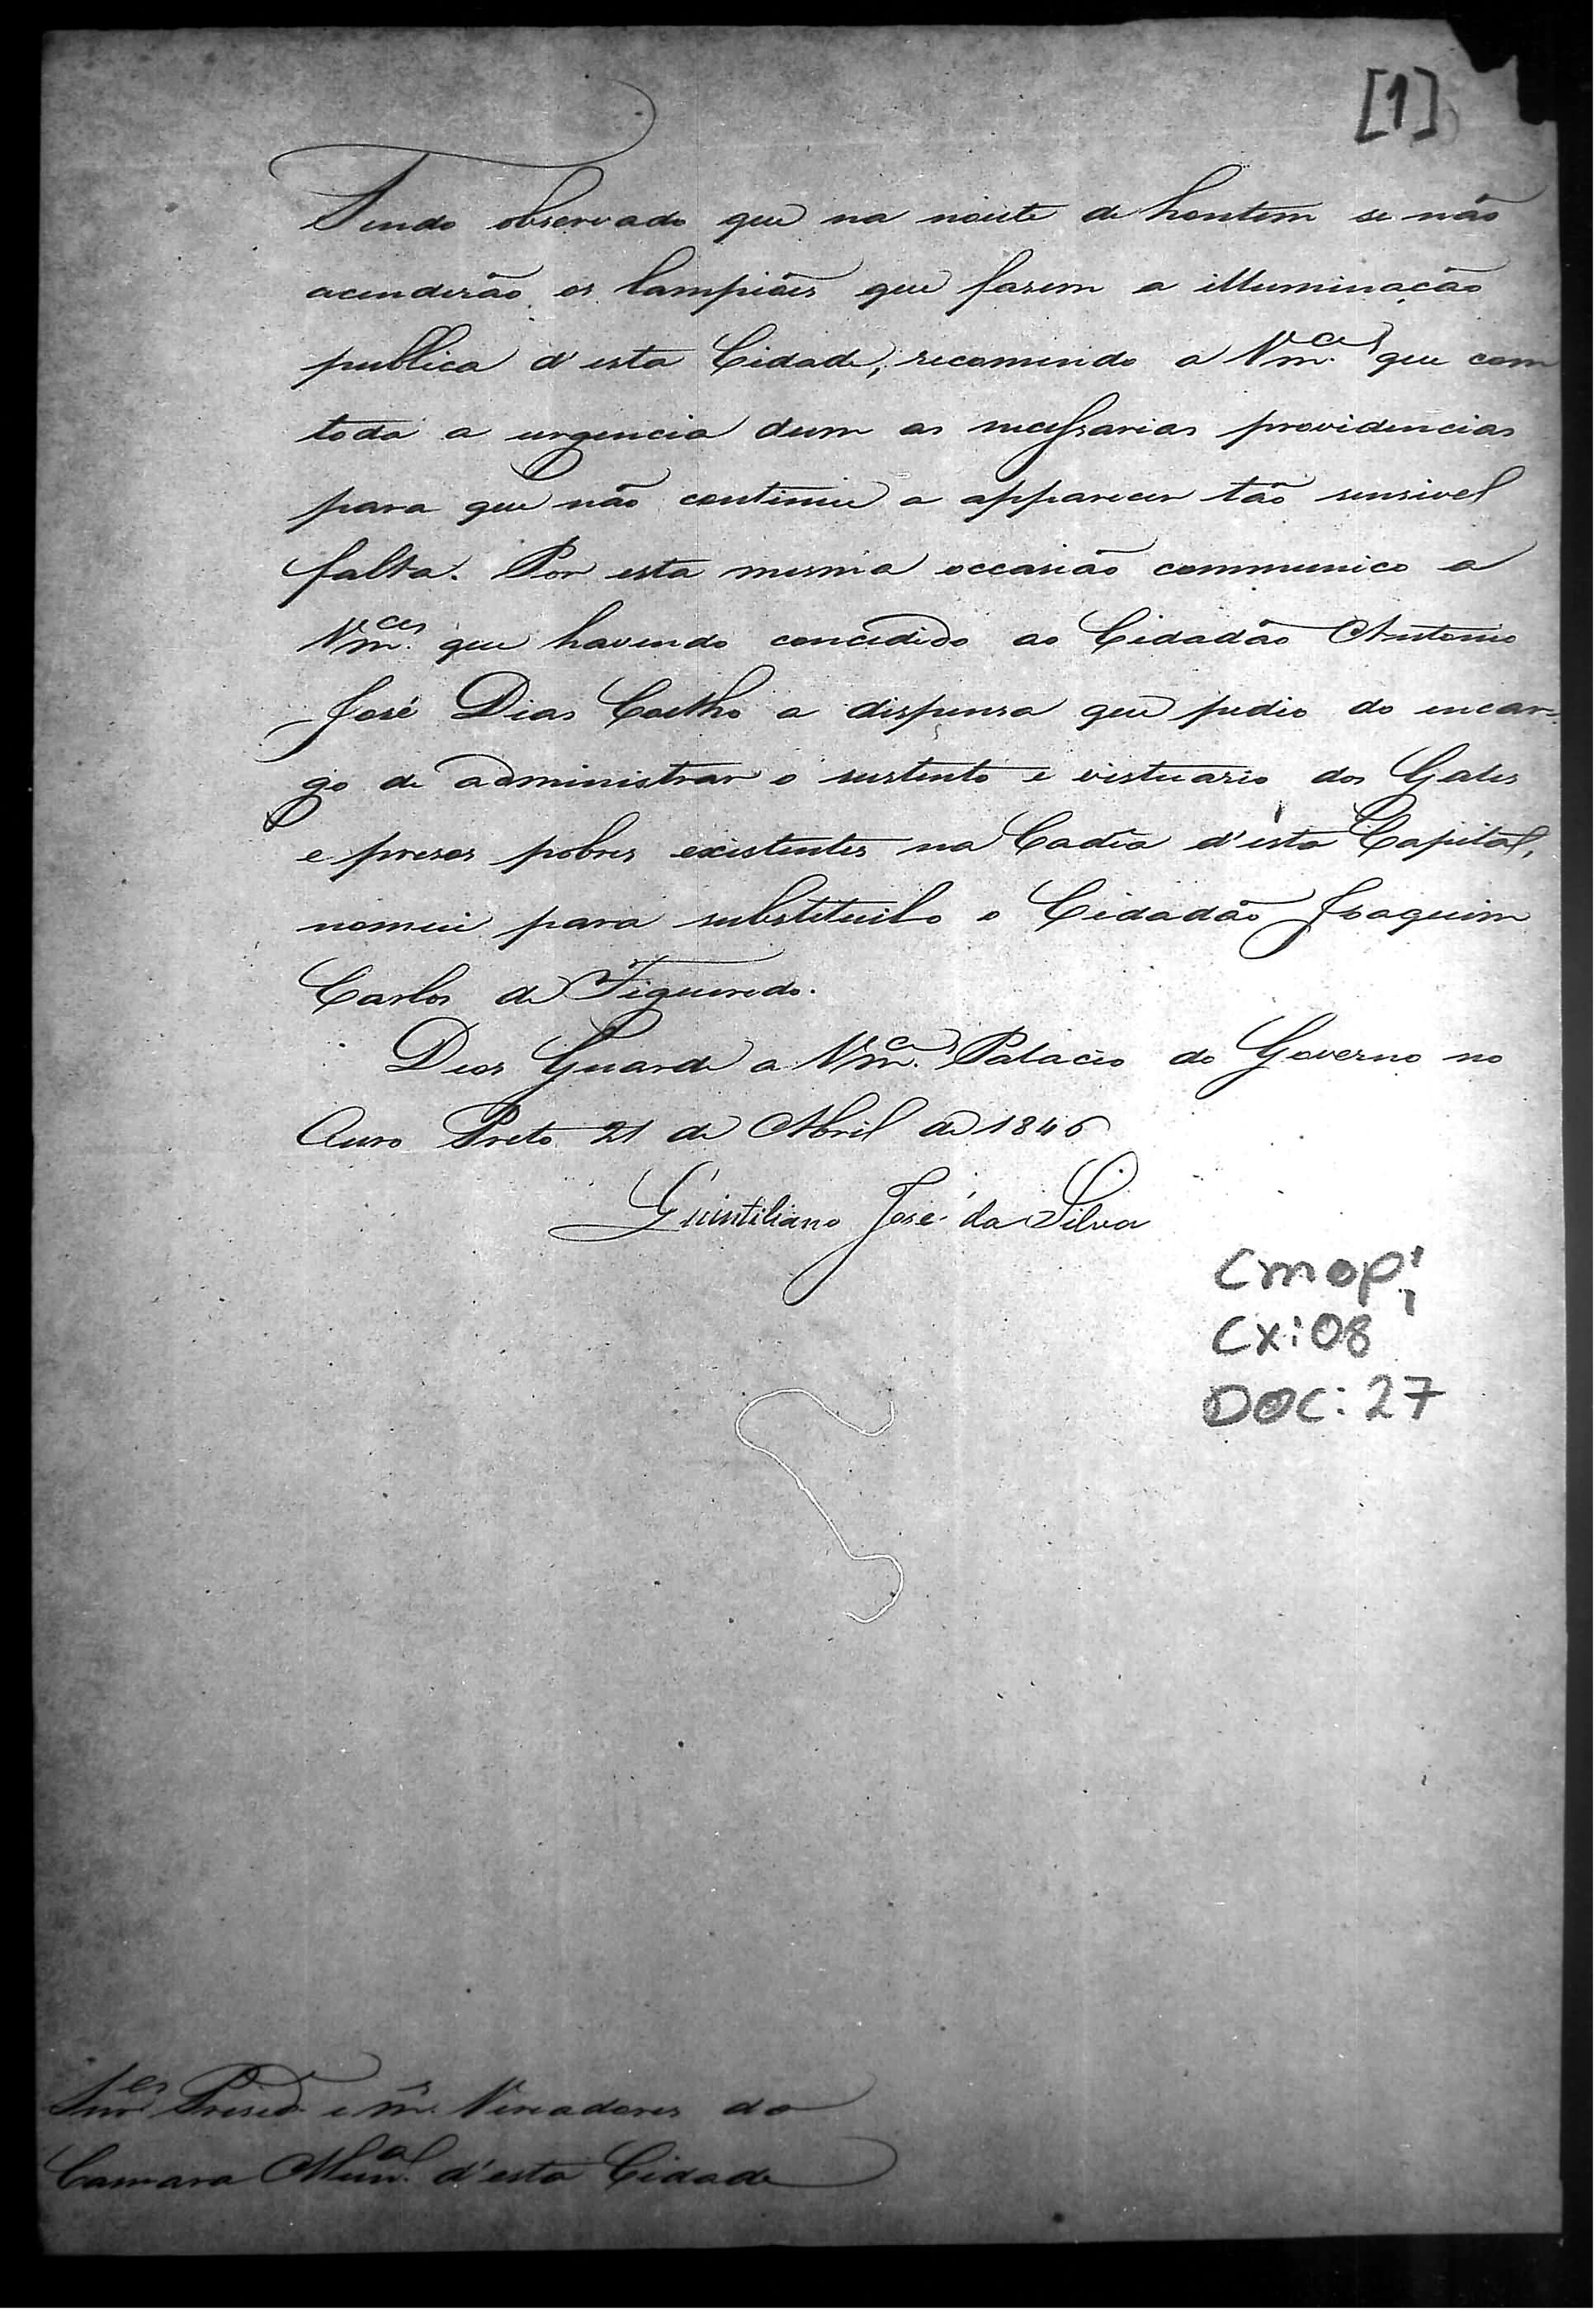 [1]
Tendo observado que na noute de hontem se não
acenderão os lampiões que fasem a illuminação
publica d'esta Cidade, recomendo a Vm.ces que com
toda a urgencia dem as necessarias providencias
para que não continue a apparecer tão sensivel
falta. Por esta mesma occasião communico a
Vm.ces que havendo concedido ao Cidadão Antonio
José Dias Coelho a dispensa que pedio do encar-
go de administrar o sustento e vestuario dos Galés
e presos pobres existentes na Cadêa d'esta Capital,
nomeei para substituilo o Cidadão Joaquim
Carlos de Figueredo.
Deos Guarde a Vm.ces Palacio do Governo no
Ouro Preto 21 de Abril de 1846
Quintiliano José da Silva
CMOP;
CX: 08
DOC: 27
Snr.es Presid.e e m.s Vereadores da
Camara Mun.al d'esta Cidade